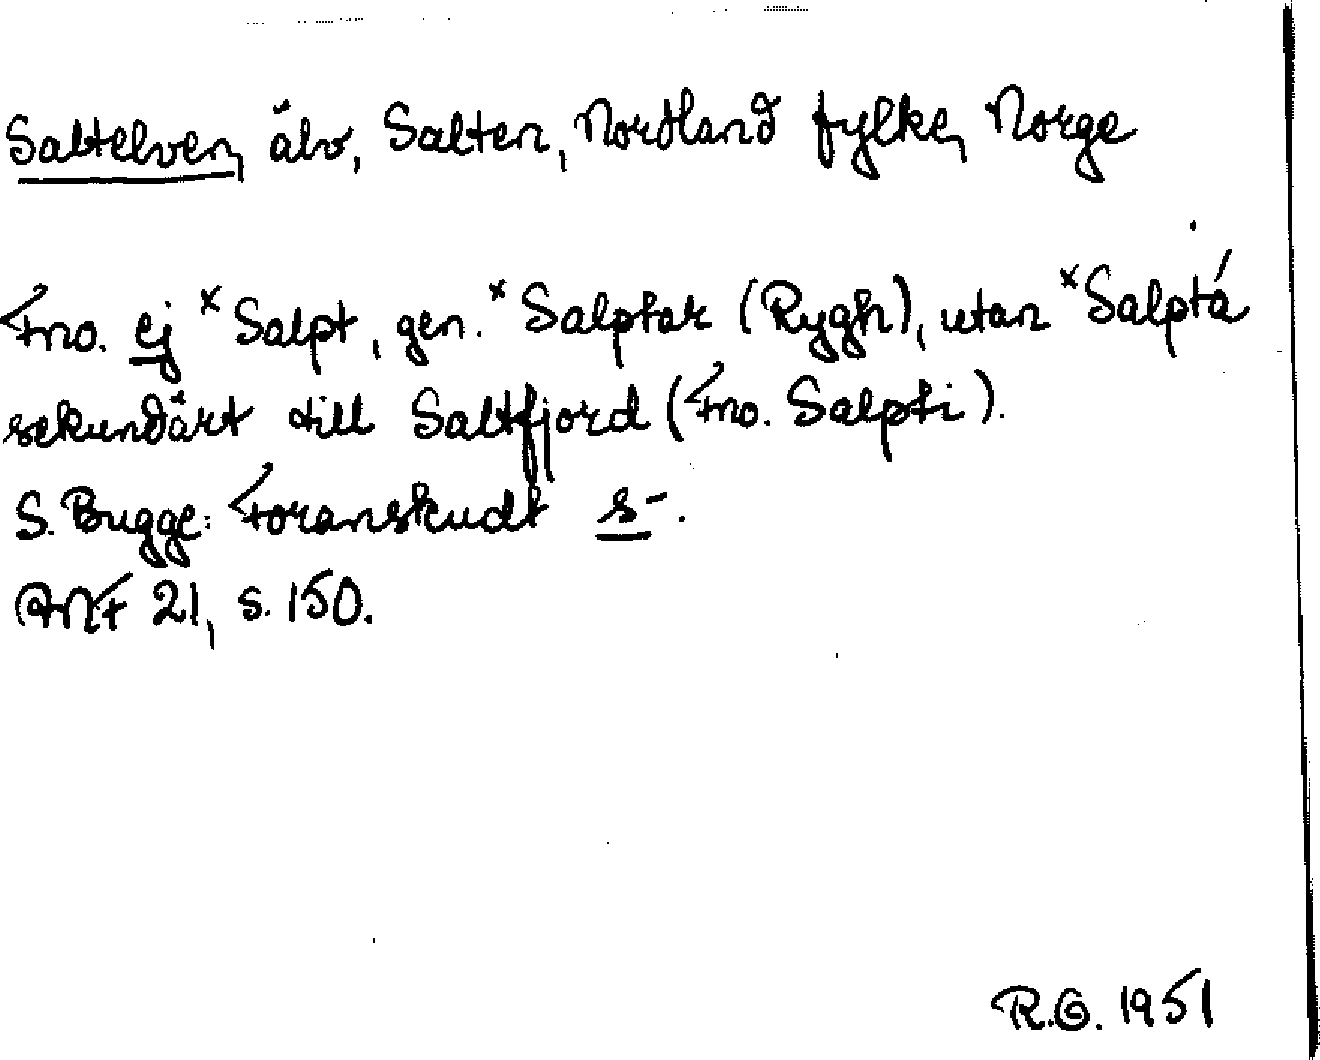 Saltelven, älv, Salten, Nordland fylke, Norge
Fno. ej ˣSalpt, gen. ˣSalptar (Rygh), utan ˣSalptá
sekundärt till Saltfjord (Fno. Salpti).
S. Bugge: Foranskudt s-.
ANF 21, s. 150.
R.G. 1951